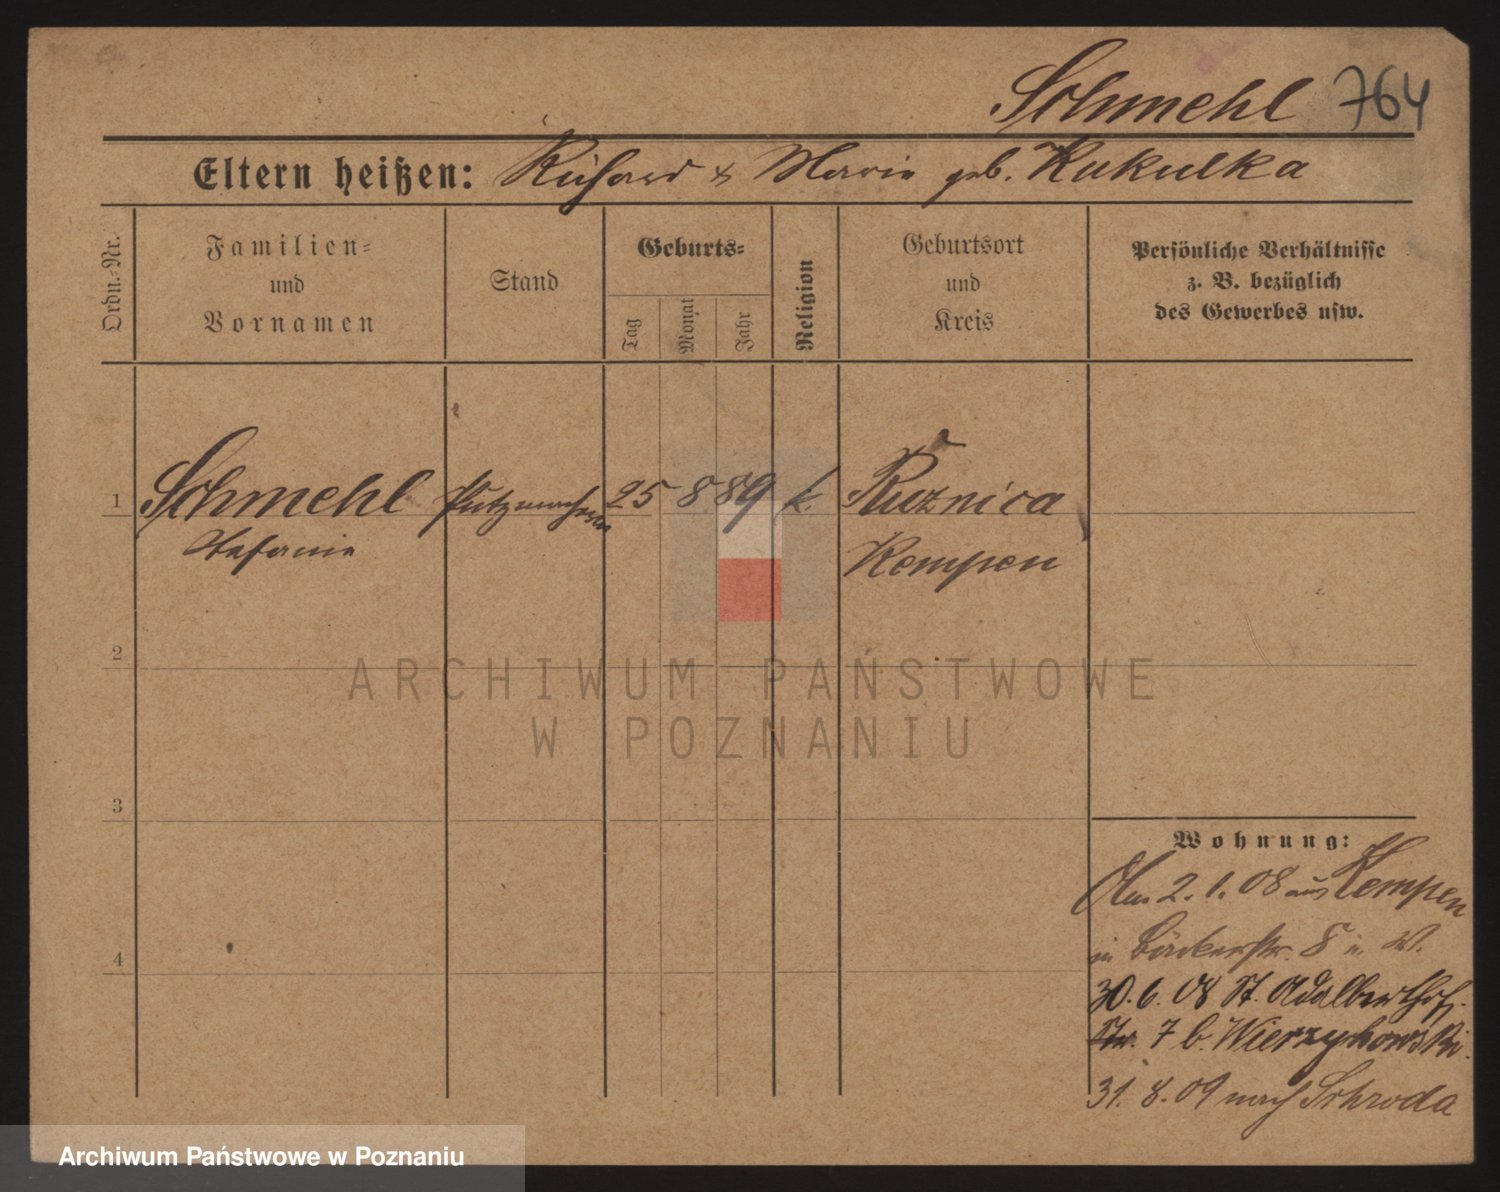 Schmehl 764
Eltern heißen: Richard & Marie geb. Kukulka
Ordn.=Nr.
Familien=
und
Vornamen
Stand
Geburts=
Tag
Monat
Jahr
Religion
Geburtsort
und
Kreis
Persönliche Verhältnisse
z. B. bezüglich
des Gewerbes usw.
1 Schmehl Putzmacherin 25 8 89 k. Kuznica
Stefanie Kempen
2
ARCHIWUM PAŃSTWOWE
W POZNANIU
3
Wohnung:
Am 2. 1. 08 aus Kempen
in Bäckerstr. 8
4
30. 6. 08 St. Adalberthof-
Str. 7 b. Wierzykowski
31. 8. 09 nach Schroda
Archiwum Państwowe w Poznaniu